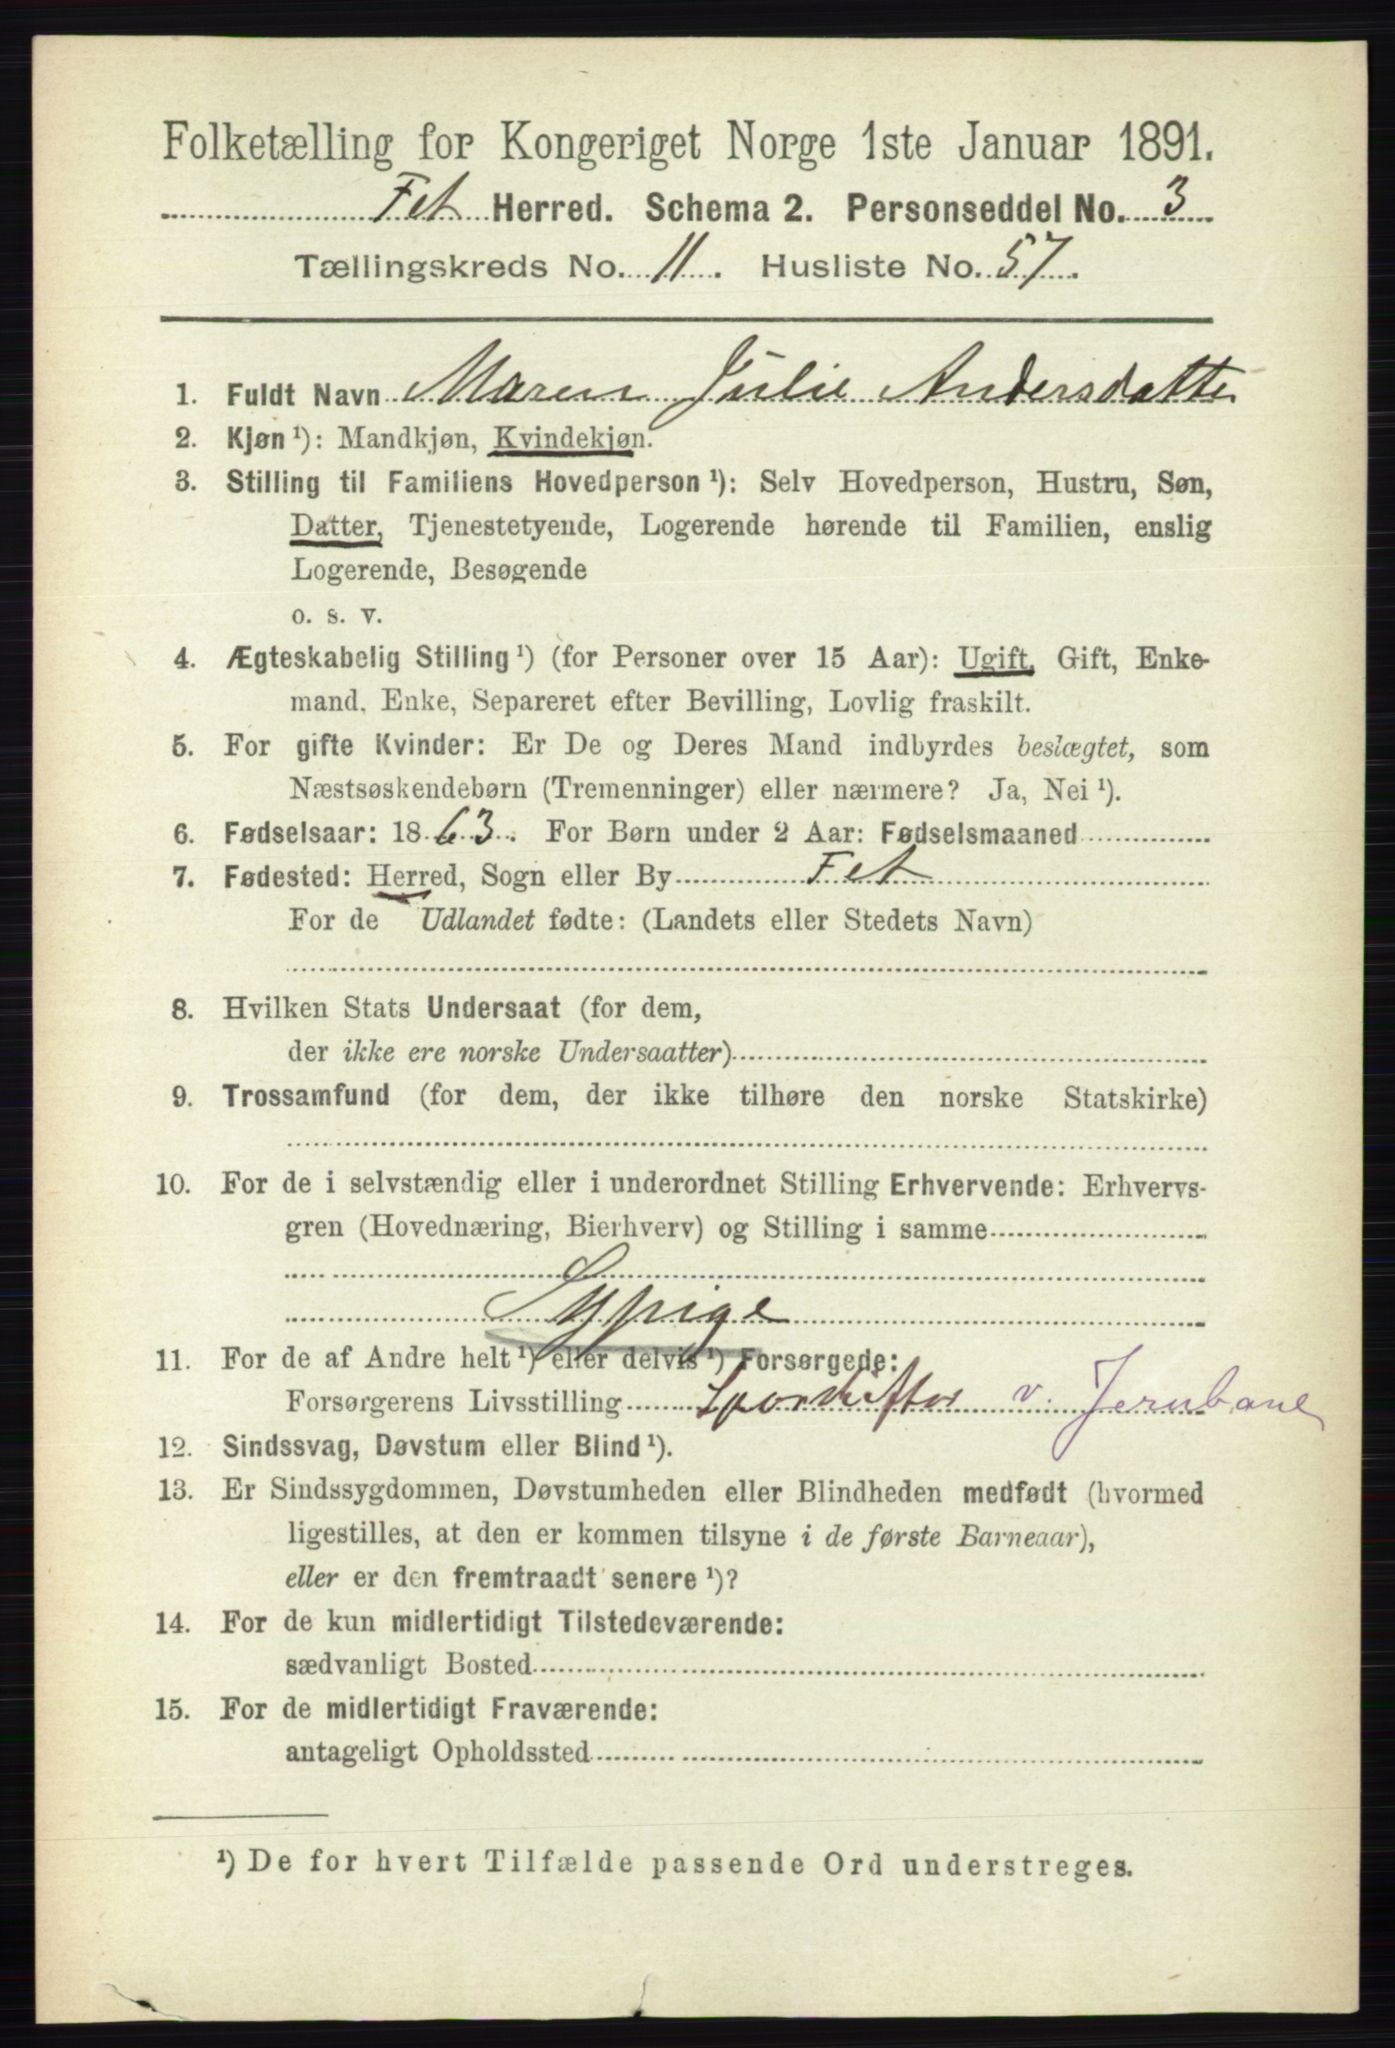 Folketælling for Kongeriget Norge 1ste Januar 1891.
Fet Herred. Schema 2. Personseddel No. 3
Tællingskreds No. 11. Husliste No. 57.
1. Fuldt Navn Maren Julie Andersdatter
2. Kjøn ¹): Mandkjøn, Kvindekjøn.
3. Stilling til Familiens Hovedperson ¹): Selv Hovedperson, Hustru, Søn,
Datter, Tjenestetyende, Logerende hørende til Familien, enslig
Logerende, Besøgende
o. s. v.
4. Ægteskabelig Stilling ¹) (for Personer over 15 Aar): Ugift, Gift, Enke-
mand, Enke, Separeret efter Bevilling, Lovlig fraskilt.
5. For gifte Kvinder: Er De og Deres Mand indbyrdes beslægtet, som
Næstsøskendebørn (Tremenninger) eller nærmere? Ja, Nei ¹).
6. Fødselsaar: 1863. For Børn under 2 Aar: Fødselsmaaned
7. Fødested: Herred, Sogn eller By Fet
For de Udlandet fødte: (Landets eller Stedets Navn)
8. Hvilken Stats Undersaat (for dem,
der ikke ere norske Undersaatter)
9. Trossamfund (for dem, der ikke tilhøre den norske Statskirke)
10. For de i selvstændig eller i underordnet Stilling Erhvervende: Erhvervs-
gren (Hovednæring, Bierhverv) og Stilling i samme
Sypige
11. For de af Andre helt ¹) eller delvis ¹) Forsørgede:
Forsørgerens Livsstilling v. Jernbane
12. Sindssvag, Døvstum eller Blind ¹).
13. Er Sindssygdommen, Døvstumheden eller Blindheden medfødt (hvormed
ligestilles, at den er kommen tilsyne i de første Barneaar),
eller er den fremtraadt senere ¹)?
14. For de kun midlertidigt Tilstedeværende:
sædvanligt Bosted
15. For de midlertidigt Fraværende:
antageligt Opholdssted
¹) De for hvert Tilfælde passende Ord understreges.